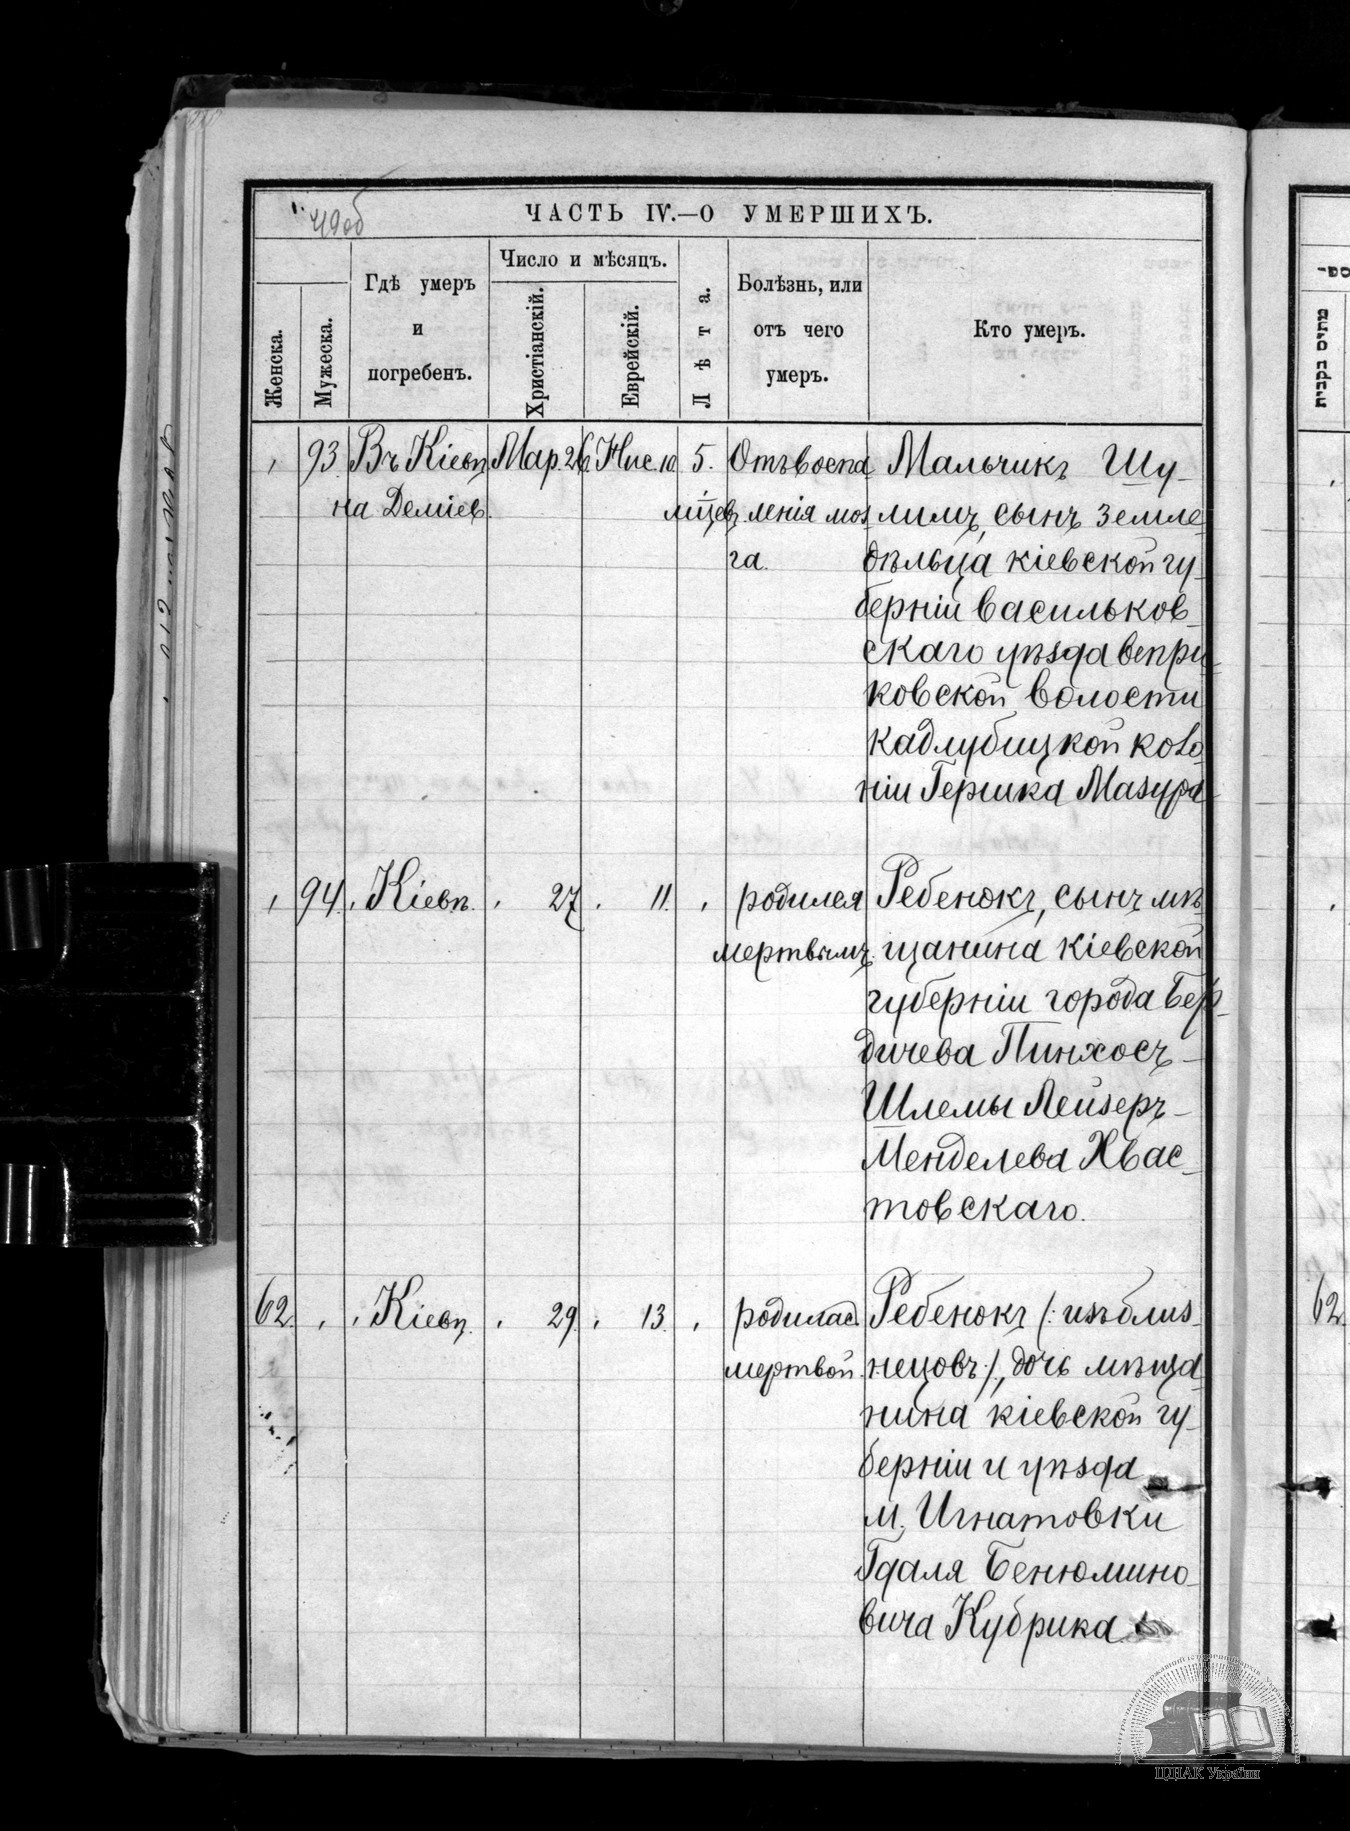 49об
ЧАСТЬ IV.—О УМЕРШИХЪ.
Женска.
Мужеска.
Гдѣ умеръ
и
погребенъ.
Число и мѣсяцъ.
Христіанскій.
Еврейскій.
Лѣта.
Болѣзнь, или
отъ чего
умеръ.
Кто умеръ.
93. Въ Кіевѣ Мар. 26 Нис. 10 5. Отъ воспа Мальчикъ Шу-
на Деміев. мѣсяцев. ленія моз лимъ, сынъ земле
га. дѣльца кіевской гу-
берніи васильков-
скаго уѣзда вепри-
ковской волости
кадлубицкой коло
ніи Гершка Мазура
94. Кіевѣ. 27 11. родился Ребенокъ, сынъ мѣ
мертвымъ. щанина кіевской
губерніи города Бер-
дичева Пинхосъ-
Шлемы Лейзеръ-
Менделева Хвас-
товскаго.
62. Кіевѣ. 29. 13. родилас. Ребенокъ /: изъ близ-
мертвой. нецовъ :/, дочь мѣща-
нина кіевской гу-
берніи и уѣзда
м. Игнатовки
Гдаля Бенюмино-
вича Кубрика
62.
מתים
ЦДІАК України